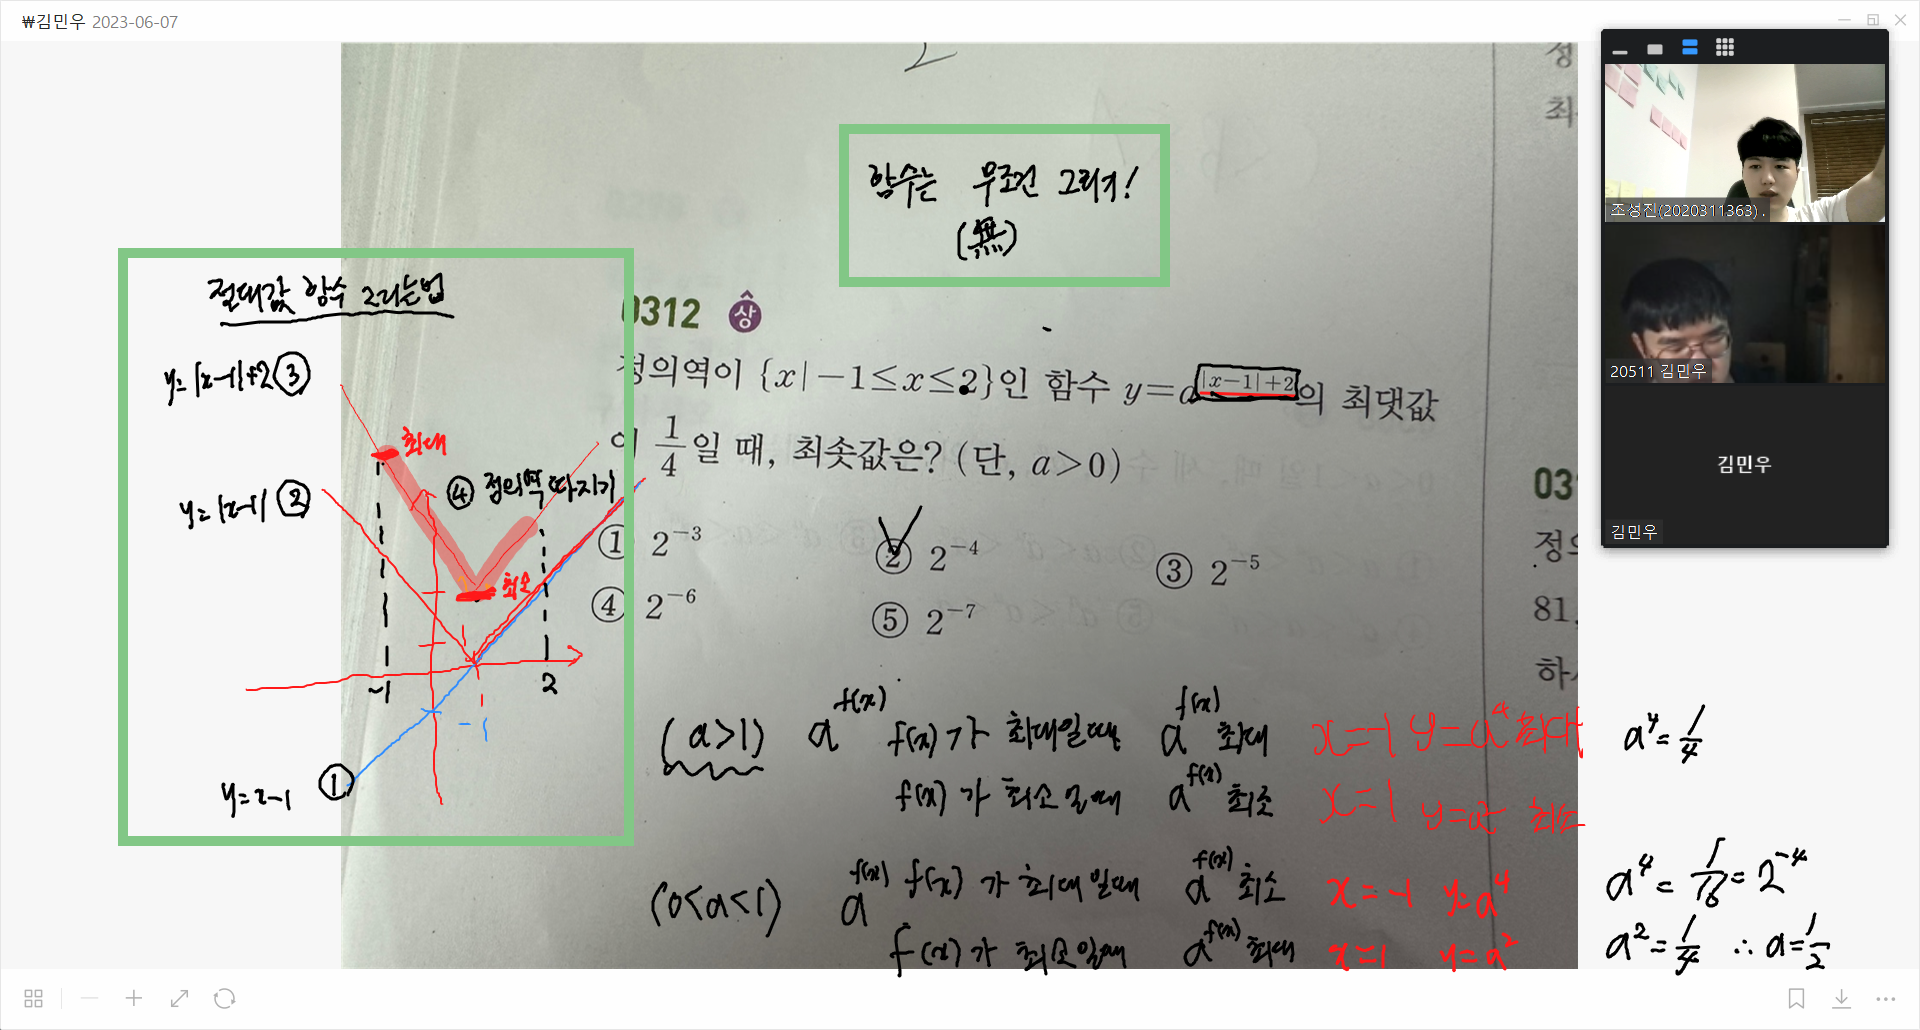 ₩김민우 2023-06-07
함수는 무조건 그리기!
(無)
절대값 함수 그리는법
y=|x-1|+2 ③
최대
④ 정의역 따지기
y=|x-1| ②
최소
1
-1
2
-1
y=x-1 ①
0312 상
정의역이 {x|-1≤x≤2}인 함수 y=a^{|x-1|+2}의 최댓값
이 1/4일 때, 최솟값은? (단, a>0)
① 2^{-3}
② 2^{-4}
③ 2^{-5}
④ 2^{-6}
⑤ 2^{-7}
(a>1) a^{f(x)} f(x)가 최대일때 a^{f(x)} 최대 x=-1 y=a^4 최대 a^4=1/4
f(x)가 최소일때 a^{f(x)} 최소 x=1 y=a^2 최소
(0<a<1) a^{f(x)} f(x)가 최대일때 a^{f(x)} 최소 x=-1 y=a^4 a^4=1/16=2^{-4}
f(x)가 최소일때 a^{f(x)} 최대 x=1 y=a^2 a^2=1/4 ∴a=1/2
정
최
03
정의
81.
하시
조성진(2020311363) .
20511 김민우
김민우
김민우